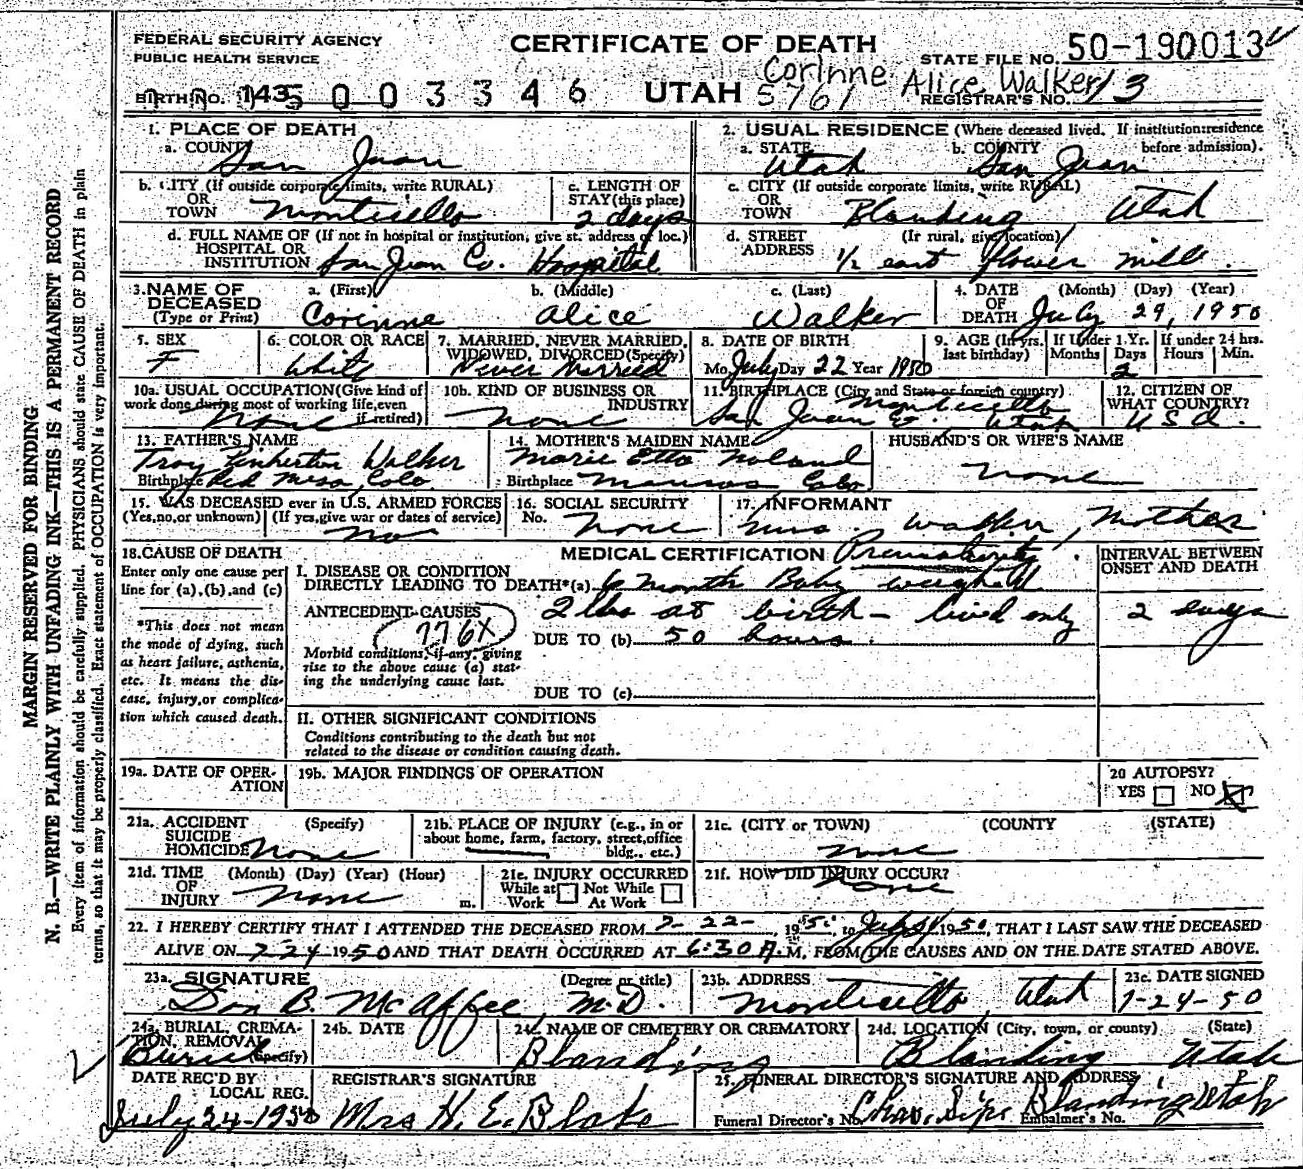 FEDERAL SECURITY AGENCY
PUBLIC HEALTH SERVICE
CERTIFICATE OF DEATH
STATE FILE NO. 50-190013
BIRTH NO. 143 003346
UTAH
Corinne Alice Walker
5761
REGISTRAR'S NO. 13
1. PLACE OF DEATH
a. COUNTY San Juan
2. USUAL RESIDENCE (Where deceased lived. If institution: residence before admission).
a. STATE Utah b. COUNTY San Juan
b. CITY (If outside corporate limits, write RURAL) OR TOWN Monticello
c. LENGTH OF STAY (this place) 2 days
c. CITY (If outside corporate limits, write RURAL) OR TOWN Blanding Utah
d. FULL NAME OF (If not in hospital or institution, give st. address or loc.) HOSPITAL OR INSTITUTION San Juan Co. Hospital
d. STREET ADDRESS (If rural, give location) 1/2 east flower mill.
3. NAME OF DECEASED (Type or Print)
a. (First) Corinne b. (Middle) Alice c. (Last) Walker
4. DATE OF DEATH (Month) (Day) (Year) July 29, 1950
5. SEX F
6. COLOR OR RACE White
7. MARRIED, NEVER MARRIED, WIDOWED, DIVORCED (Specify) Never Married
8. DATE OF BIRTH Mo. July Day 22 Year 1950
9. AGE (In yrs. last birthday) If Under 1 Yr. Months Days 2 If under 24 hrs. Hours Min.
10a. USUAL OCCUPATION (Give kind of work done during most of working life, even if retired) None
10b. KIND OF BUSINESS OR INDUSTRY None
11. BIRTHPLACE (City and State or foreign country) Monticello San Juan Co. Utah
12. CITIZEN OF WHAT COUNTRY? USA.
13. FATHER'S NAME Troy Pinkerton Walker
Birthplace Red Mesa, Colo.
14. MOTHER'S MAIDEN NAME Marie Etta Noland
Birthplace Mancos Colo
HUSBAND'S OR WIFE'S NAME None
15. WAS DECEASED ever in U.S. ARMED FORCES (Yes, no, or unknown) (If yes, give war or dates of service) no
16. SOCIAL SECURITY No. None
17. INFORMANT Mrs. Walker, Mother
18. CAUSE OF DEATH
Enter only one cause per line for (a), (b), and (c)
*This does not mean the mode of dying, such as heart failure, asthenia, etc. It means the disease, injury, or complication which caused death.
MEDICAL CERTIFICATION Prematurity
INTERVAL BETWEEN ONSET AND DEATH
I. DISEASE OR CONDITION DIRECTLY LEADING TO DEATH*(a) 6 month Baby weighed
2 lbs at birth - lived only
2 days
ANTECEDENT CAUSES
776X
DUE TO (b) 50 hours.
Morbid conditions, if any, giving rise to the above cause (a) stating the underlying cause last.
DUE TO (c)
II. OTHER SIGNIFICANT CONDITIONS
Conditions contributing to the death but not related to the disease or condition causing death.
19a. DATE OF OPERATION
19b. MAJOR FINDINGS OF OPERATION
20 AUTOPSY?
YES NO X
21a. ACCIDENT SUICIDE HOMICIDE (Specify) None
21b. PLACE OF INJURY (e.g., in or about home, farm, factory, street, office bldg., etc.)
21c. (CITY or TOWN) (COUNTY) (STATE)
none
21d. TIME OF INJURY (Month) (Day) (Year) (Hour) m. none
21e. INJURY OCCURRED While at Work Not While At Work
21f. HOW DID INJURY OCCUR? none
22. I HEREBY CERTIFY THAT I ATTENDED THE DECEASED FROM 7-22-, 1950, to July 1950, THAT I LAST SAW THE DECEASED
ALIVE ON 7-24 1950 AND THAT DEATH OCCURRED AT 6:30 A.M. FROM THE CAUSES AND ON THE DATE STATED ABOVE.
23a. SIGNATURE (Degree or title) Don B. McAffee, M.D.
23b. ADDRESS Monticello Utah
23c. DATE SIGNED 7-24-50
24a. BURIAL, CREMATION, REMOVAL (Specify) Burial
24b. DATE
24c. NAME OF CEMETERY OR CREMATORY Blanding
24d. LOCATION (City, town, or county) (State) Blanding Utah
DATE REC'D BY LOCAL REG. July 24-1950
REGISTRAR'S SIGNATURE Mrs H. E. Blake
25. FUNERAL DIRECTOR'S SIGNATURE AND ADDRESS Blanding Utah
Funeral Director's No. Embalmer's No.
MARGIN RESERVED FOR BINDING
N. B.—WRITE PLAINLY WITH UNFADING INK—THIS IS A PERMANENT RECORD
Every item of information should be carefully supplied. PHYSICIANS should state CAUSE OF DEATH in plain
terms, so that it may be properly classified. Exact statement of OCCUPATION is very important.